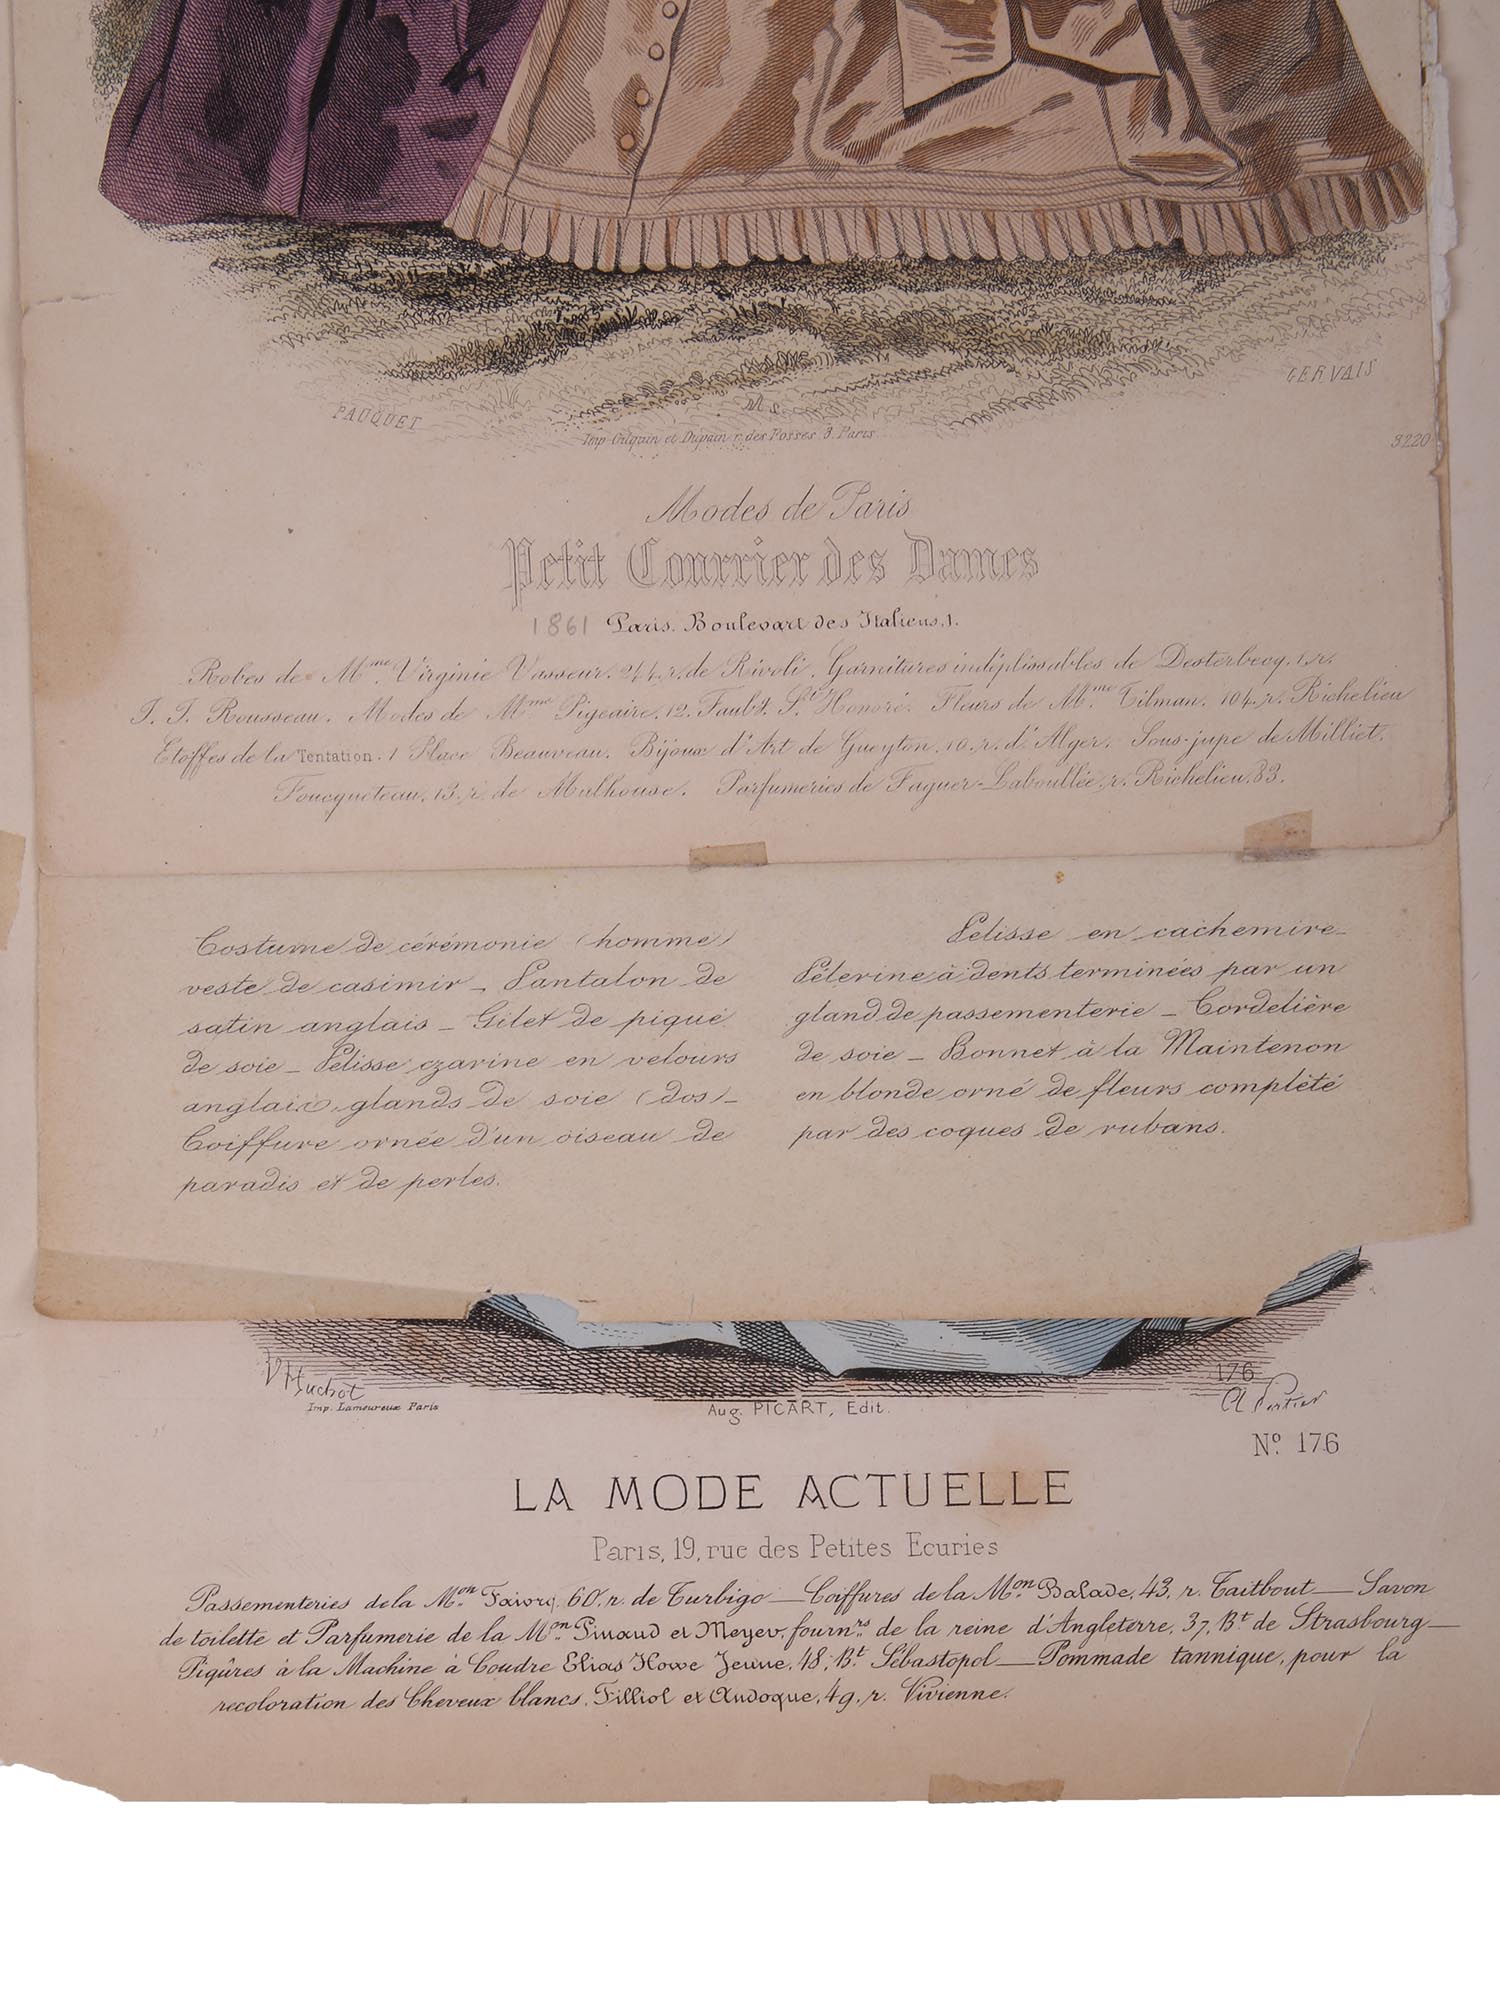 PAUQUET
GERVAIS
Imp Gilquin et Dupain r. des Fosses 3. Paris
3220
Modes de Paris
Petit Courrier des Dames
1861 Paris. Boulevart des Italiens, 1.
Robes de Mme Virginie Vasseur. 244. r. de Rivoli. Garnitures indéplissables de Desterbecq. 1, r.
J. J. Rousseau. Modes de Mme Pigeaire. 12. Faubt. St Honoré. Fleurs de Mme Tilman. 104. r. Richelieu
Etoffes de la Tentation. 1 Place Beauveau. Bijoux d'Art de Gueyton. 10. r. d'Alger. Sous-jupe de Milliet.
Foucqueteau. 13. r. de Mulhouse. Parfumeries de Faguer-Laboullée, r. Richelieu. 83.
Costume de cérémonie (homme)
veste de casimir _ Pantalon de
satin anglais _ Gilet de piqué
de soie _ Pelisse czarine en velours
anglais, glands de soie (dos) _
Coiffure ornée d'un oiseau de
paradis et de perles.
Pelisse en cachemire _
Pélerine à dents terminées par un
gland de passementerie _ Cordelière
de soie _ Bonnet à la Maintenon
en blonde orné de fleurs complété
par des coques de rubans.
V Huchot
Imp. Lamoureux Paris
Aug. PICART, Edit.
176
A Portier
No. 176
LA MODE ACTUELLE
Paris, 19, rue des Petites Ecuries
Passementeries de la Mon. Faivre, 60, r. de Turbigo _ Coiffures de la Mon. Balade, 43, r. Taitbout _ Savon
de toilette et Parfumerie de la Mon. Pinaud et Meyer, fournrs. de la reine d'Angleterre, 37, Bt. de Strasbourg _
Piqûres à la Machine à Coudre Elias Howe Jeune, 48, Bt. Sébastopol _ Pommade tannique, pour la
recoloration des Cheveux blancs, Filliol et Andoque, 49, r. Vivienne.